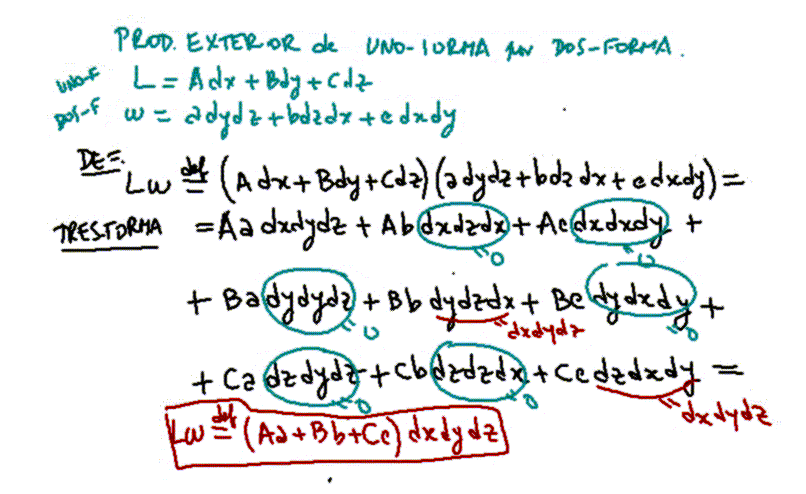 PROD. EXTERIOR de UNO-FORMA por DOS-FORMA.
UNO-F L = Adx + Bdy + Cdz
DOS-F ω = adydz + bdzdx + cdxdy
DEF.
Lω ≝ (Adx + Bdy + Cdz)(adydz + bdzdx + cdxdy) =
TRESFORMA = Aa dxdydz + Ab dxdzdx + Ac dxdxdy +
=0 =0
+ Ba dydydz + Bb dydzdx + Bc dydxdy +
=0 = dxdydz =0
+ Ca dzdydz + Cb dzdzdx + Cc dzdxdy =
=0 =0 = dxdydz
Lω ≝ (Aa + Bb + Cc) dxdydz